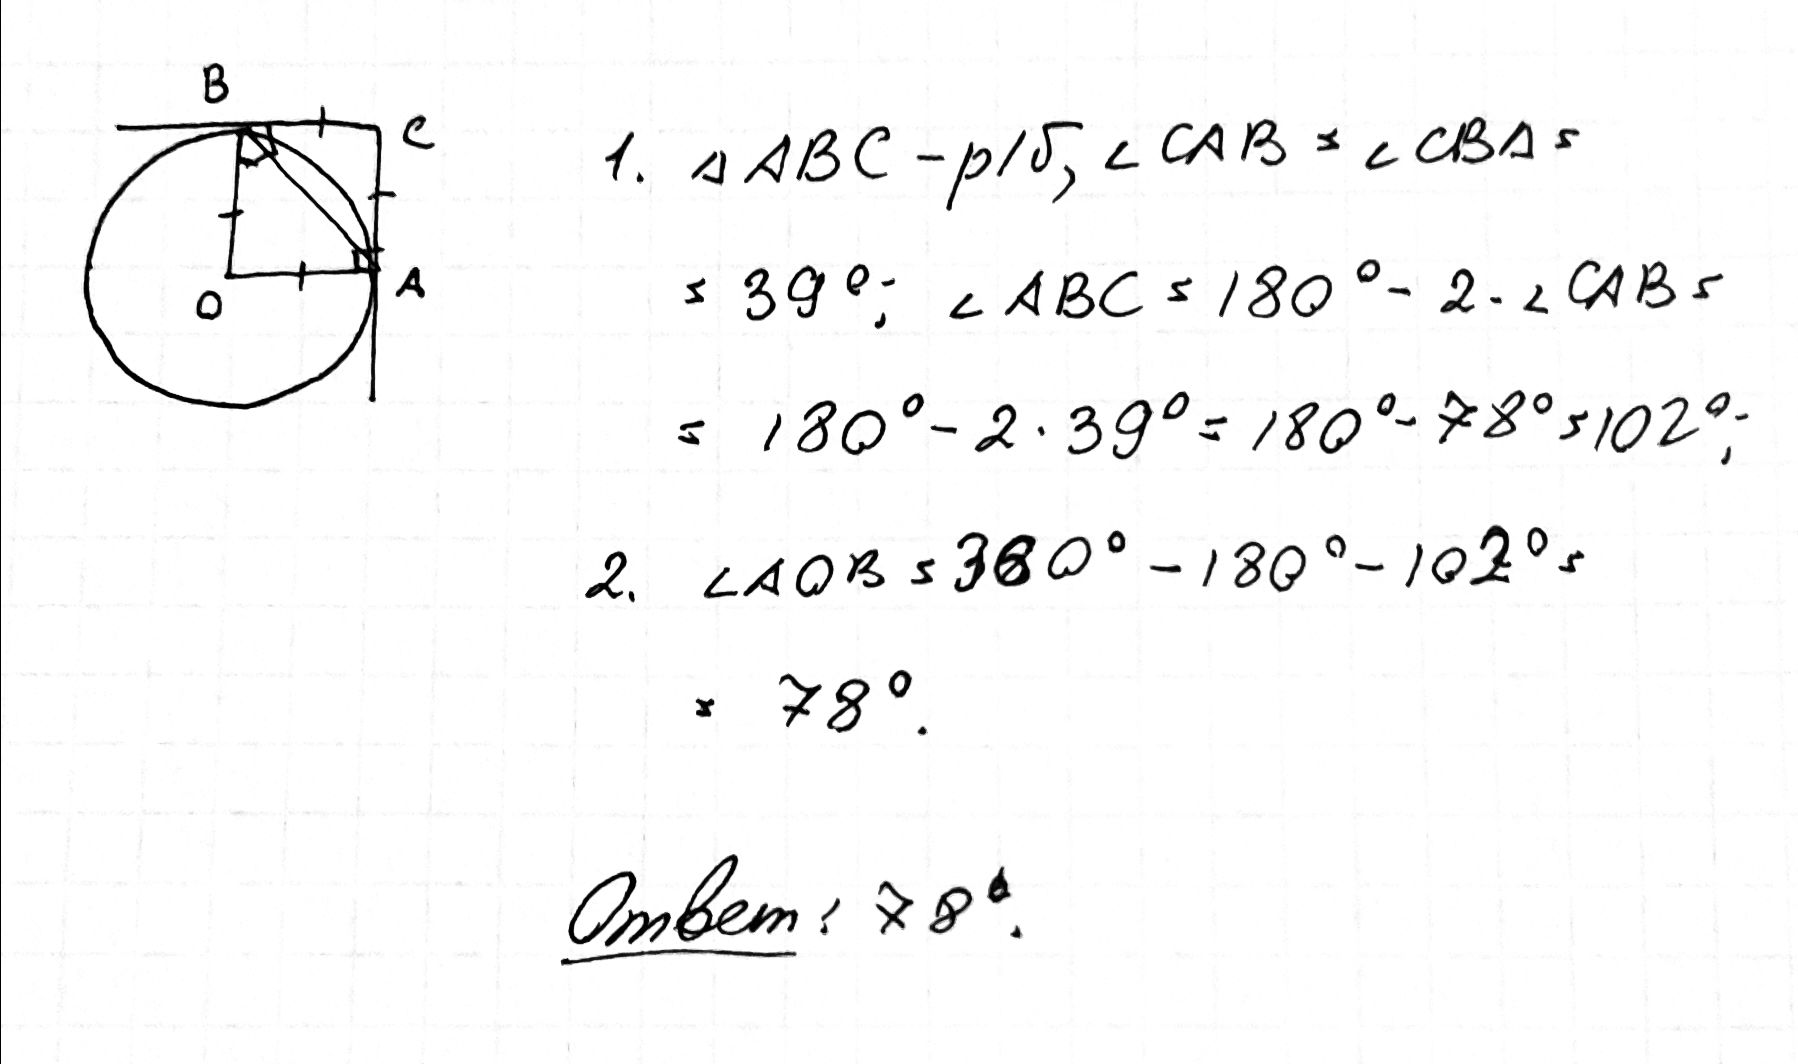 B
C
O
A
1. △ABC - р/б, ∠CAB = ∠CBA =
= 39°; ∠ABC = 180° - 2·∠CAB =
= 180° - 2·39° = 180° - 78° = 102°;
2. ∠AOB = 360° - 180° - 102° =
= 78°.
Ответ: 78°.